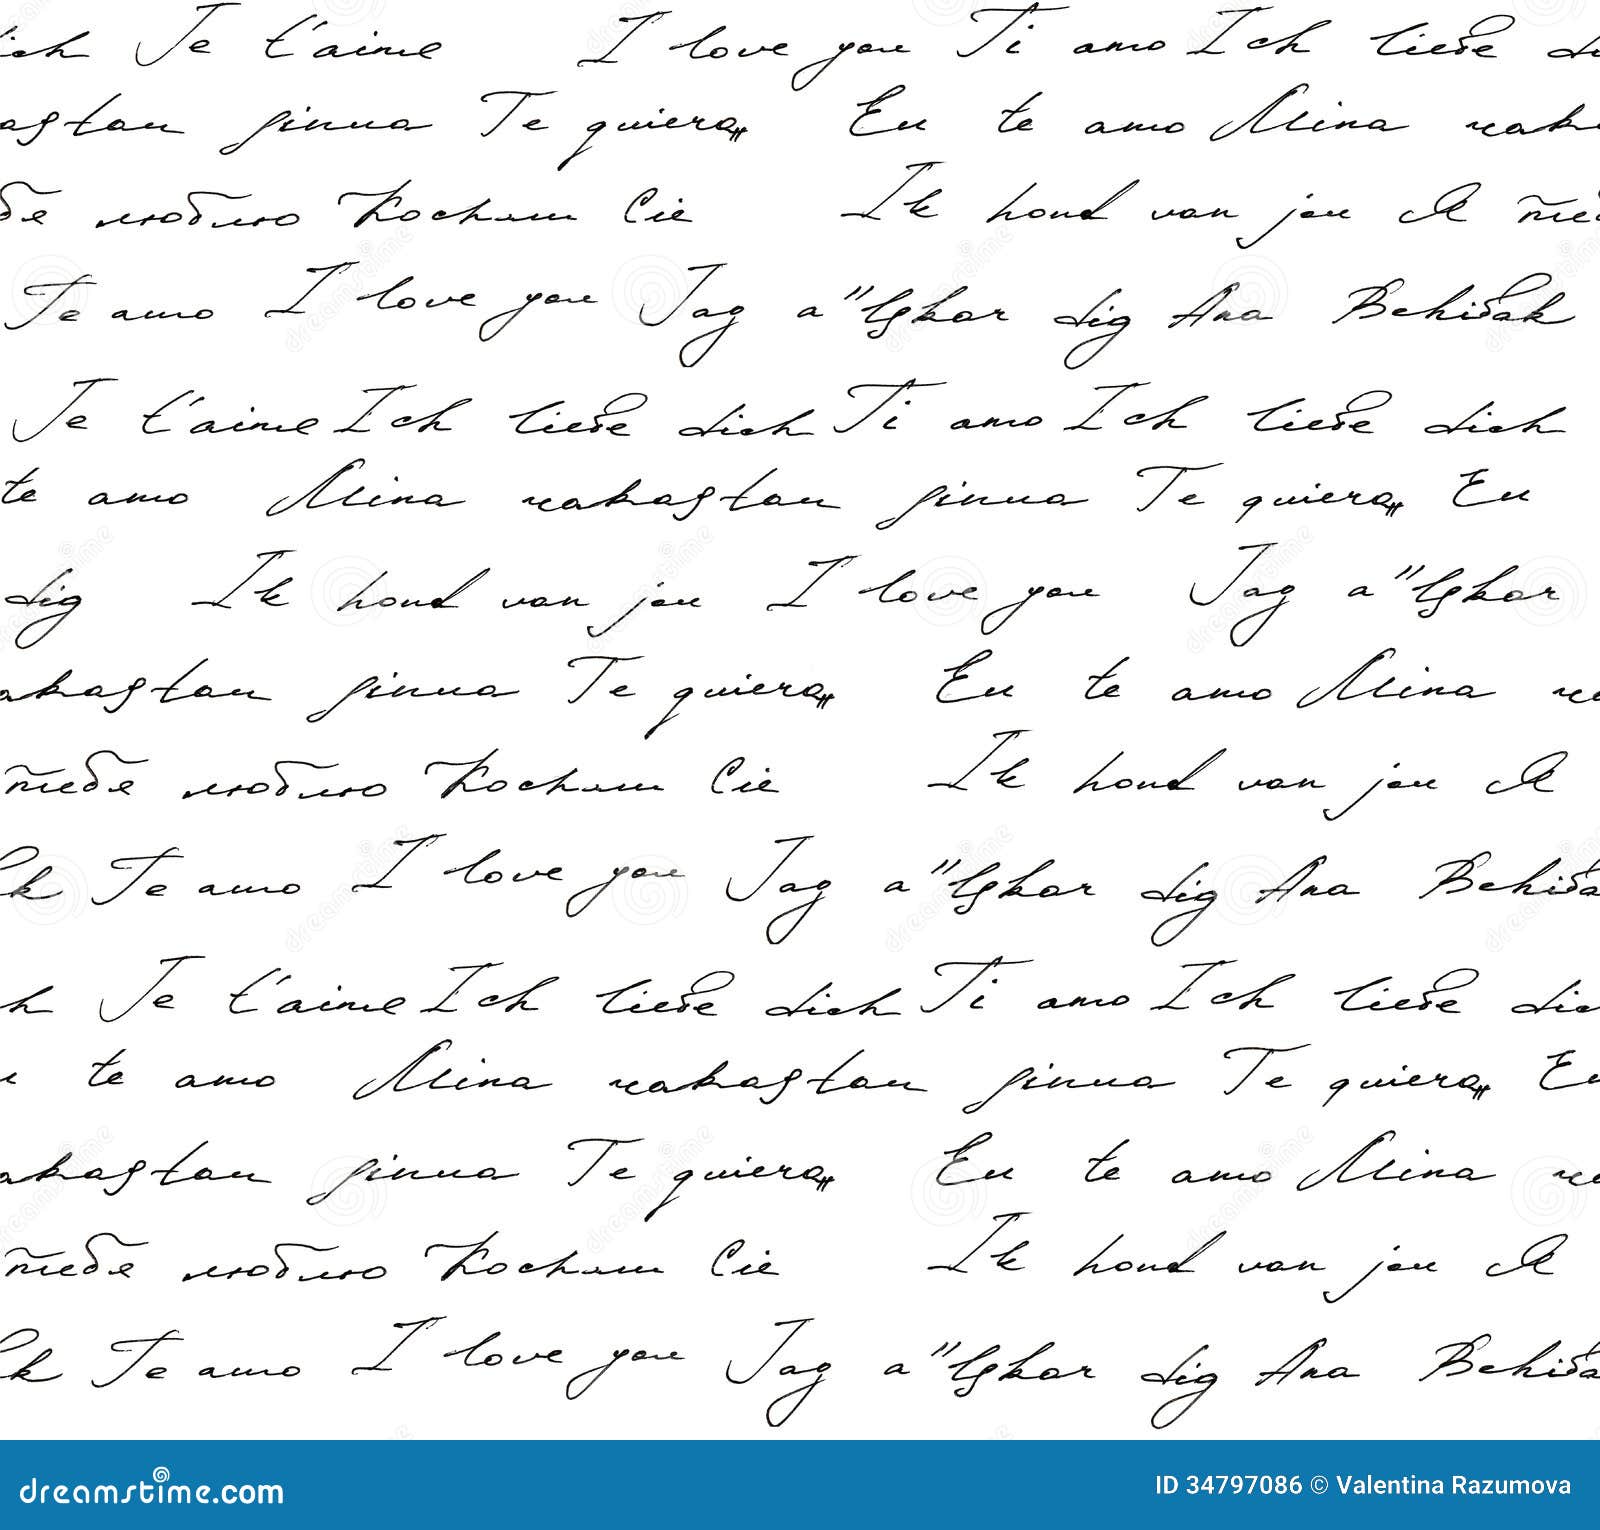 ich Je t'aime I love you Ti amo Ich liebe di
astan sinua Te quiero„ Eu te amo Mina raka
бя люблю Kocham Cie Ik houd van jou Я теб
Te amo I love you Jag a"lskar dig Ana Behibak
Je t'aime Ich liebe dich Ti amo Ich liebe dich
te amo Mina rakastan sinua Te quiero„ Eu
dig Ik houd van jou I love you Jag a"lskar
akastan sinua Te quiero„ Eu te amo Mina ra
тебя люблю Kocham Cie Ik houd van jou Я
k Te amo I love you Jag a"lskar dig Ana Behiba
h Je t'aime Ich liebe dich Ti amo Ich liebe dic
te amo Mina rakastan sinua Te quiero„ Eu
akastan sinua Te quiero„ Eu te amo Mina ra
тебя люблю Kocham Cie Ik houd van jou Я
k Te amo I love you Jag a"lskar dig Ana Behiba
dreamstime.com ID 34797086 © Valentina Razumova